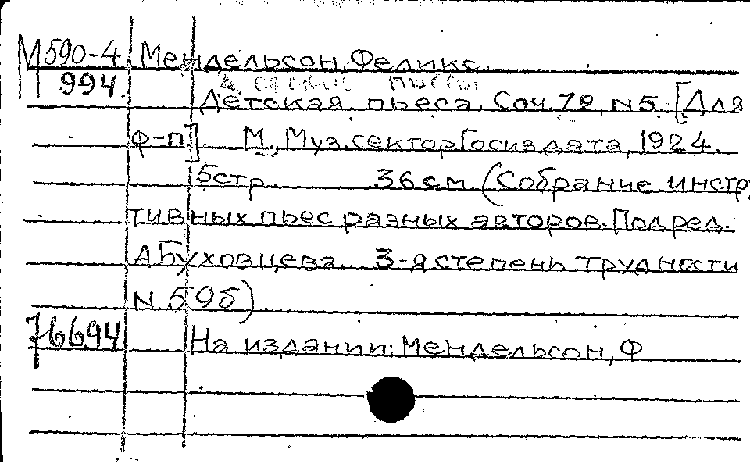 М590-4 Мендельсон, Феликс.
994
Детская пьеса. Соч. 72, N5. [Для
ф-п] М., Муз.сектор Госиздата, 1924.
5стр. 36см. (Собрание инстр
тивных пьес разных авторов. Под ред.
А Буховцева. 3-я степень трудности
N 59б)
76694 На издании: Мендельсон, Ф